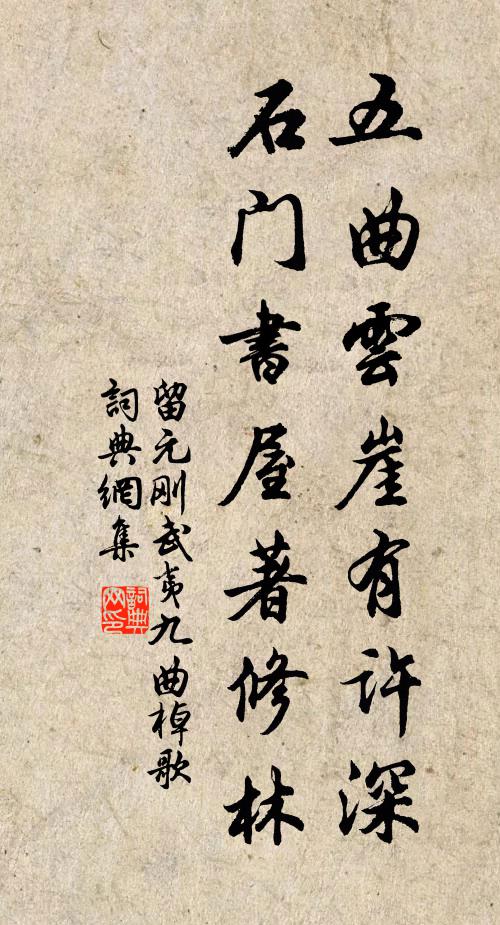 五曲雲崖有許深
石门書屋著修林
留元刚武夷九曲棹歌
詞典網集
詞典网印